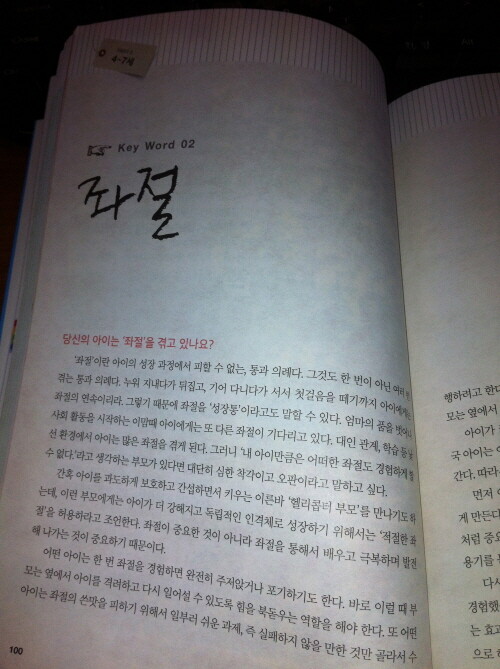 4-7세
Key Word 02
좌절
당신의 아이는 '좌절'을 겪고 있나요?
'좌절'이란 아이의 성장 과정에서 피할 수 없는, 통과 의례다. 그것도 한 번이 아닌 여러 번
겪는 통과 의례다. 누워 지내다가 뒤집고, 기어 다니다가 서서 첫걸음을 떼기까지 아이에게는
좌절의 연속이리라. 그렇기 때문에 좌절을 '성장통'이라고도 말할 수 있다. 엄마의 품을 벗어나
사회 활동을 시작하는 이맘때 아이에게는 또 다른 좌절이 기다리고 있다. 대인 관계, 학습 등 낯
선 환경에서 아이는 많은 좌절을 겪게 된다. 그러니 '내 아이만큼은 어떠한 좌절도 경험하게 할
수 없다.'라고 생각하는 부모가 있다면 대단히 심한 착각이고 오판이라고 말하고 싶다.
간혹 아이를 과도하게 보호하고 간섭하면서 키우는 이른바 '헬리콥터 부모'를 만나기도 하
는데, 이런 부모에게는 아이가 더 강해지고 독립적인 인격체로 성장하기 위해서는 '적절한 좌
절'을 허용하라고 조언한다. 좌절이 중요한 것이 아니라 좌절을 통해서 배우고 극복하며 발전
해 나가는 것이 중요하기 때문이다.
어떤 아이는 한 번 좌절을 경험하면 완전히 주저앉거나 포기하기도 한다. 바로 이럴 때 부
모는 옆에서 아이를 격려하고 다시 일어설 수 있도록 힘을 북돋우는 역할을 해야 한다. 또 어떤
아이는 좌절의 쓴맛을 피하기 위해서 일부러 쉬운 과제, 즉 실패하지 않을 만한 것만 골라서 수
100
행하려고 한다
모는 옆에서
아이가
국 아이는
간다. 따라서
먼저
게 만든다
처럼 중요
용기를
다시
경험했
는 효과
으로